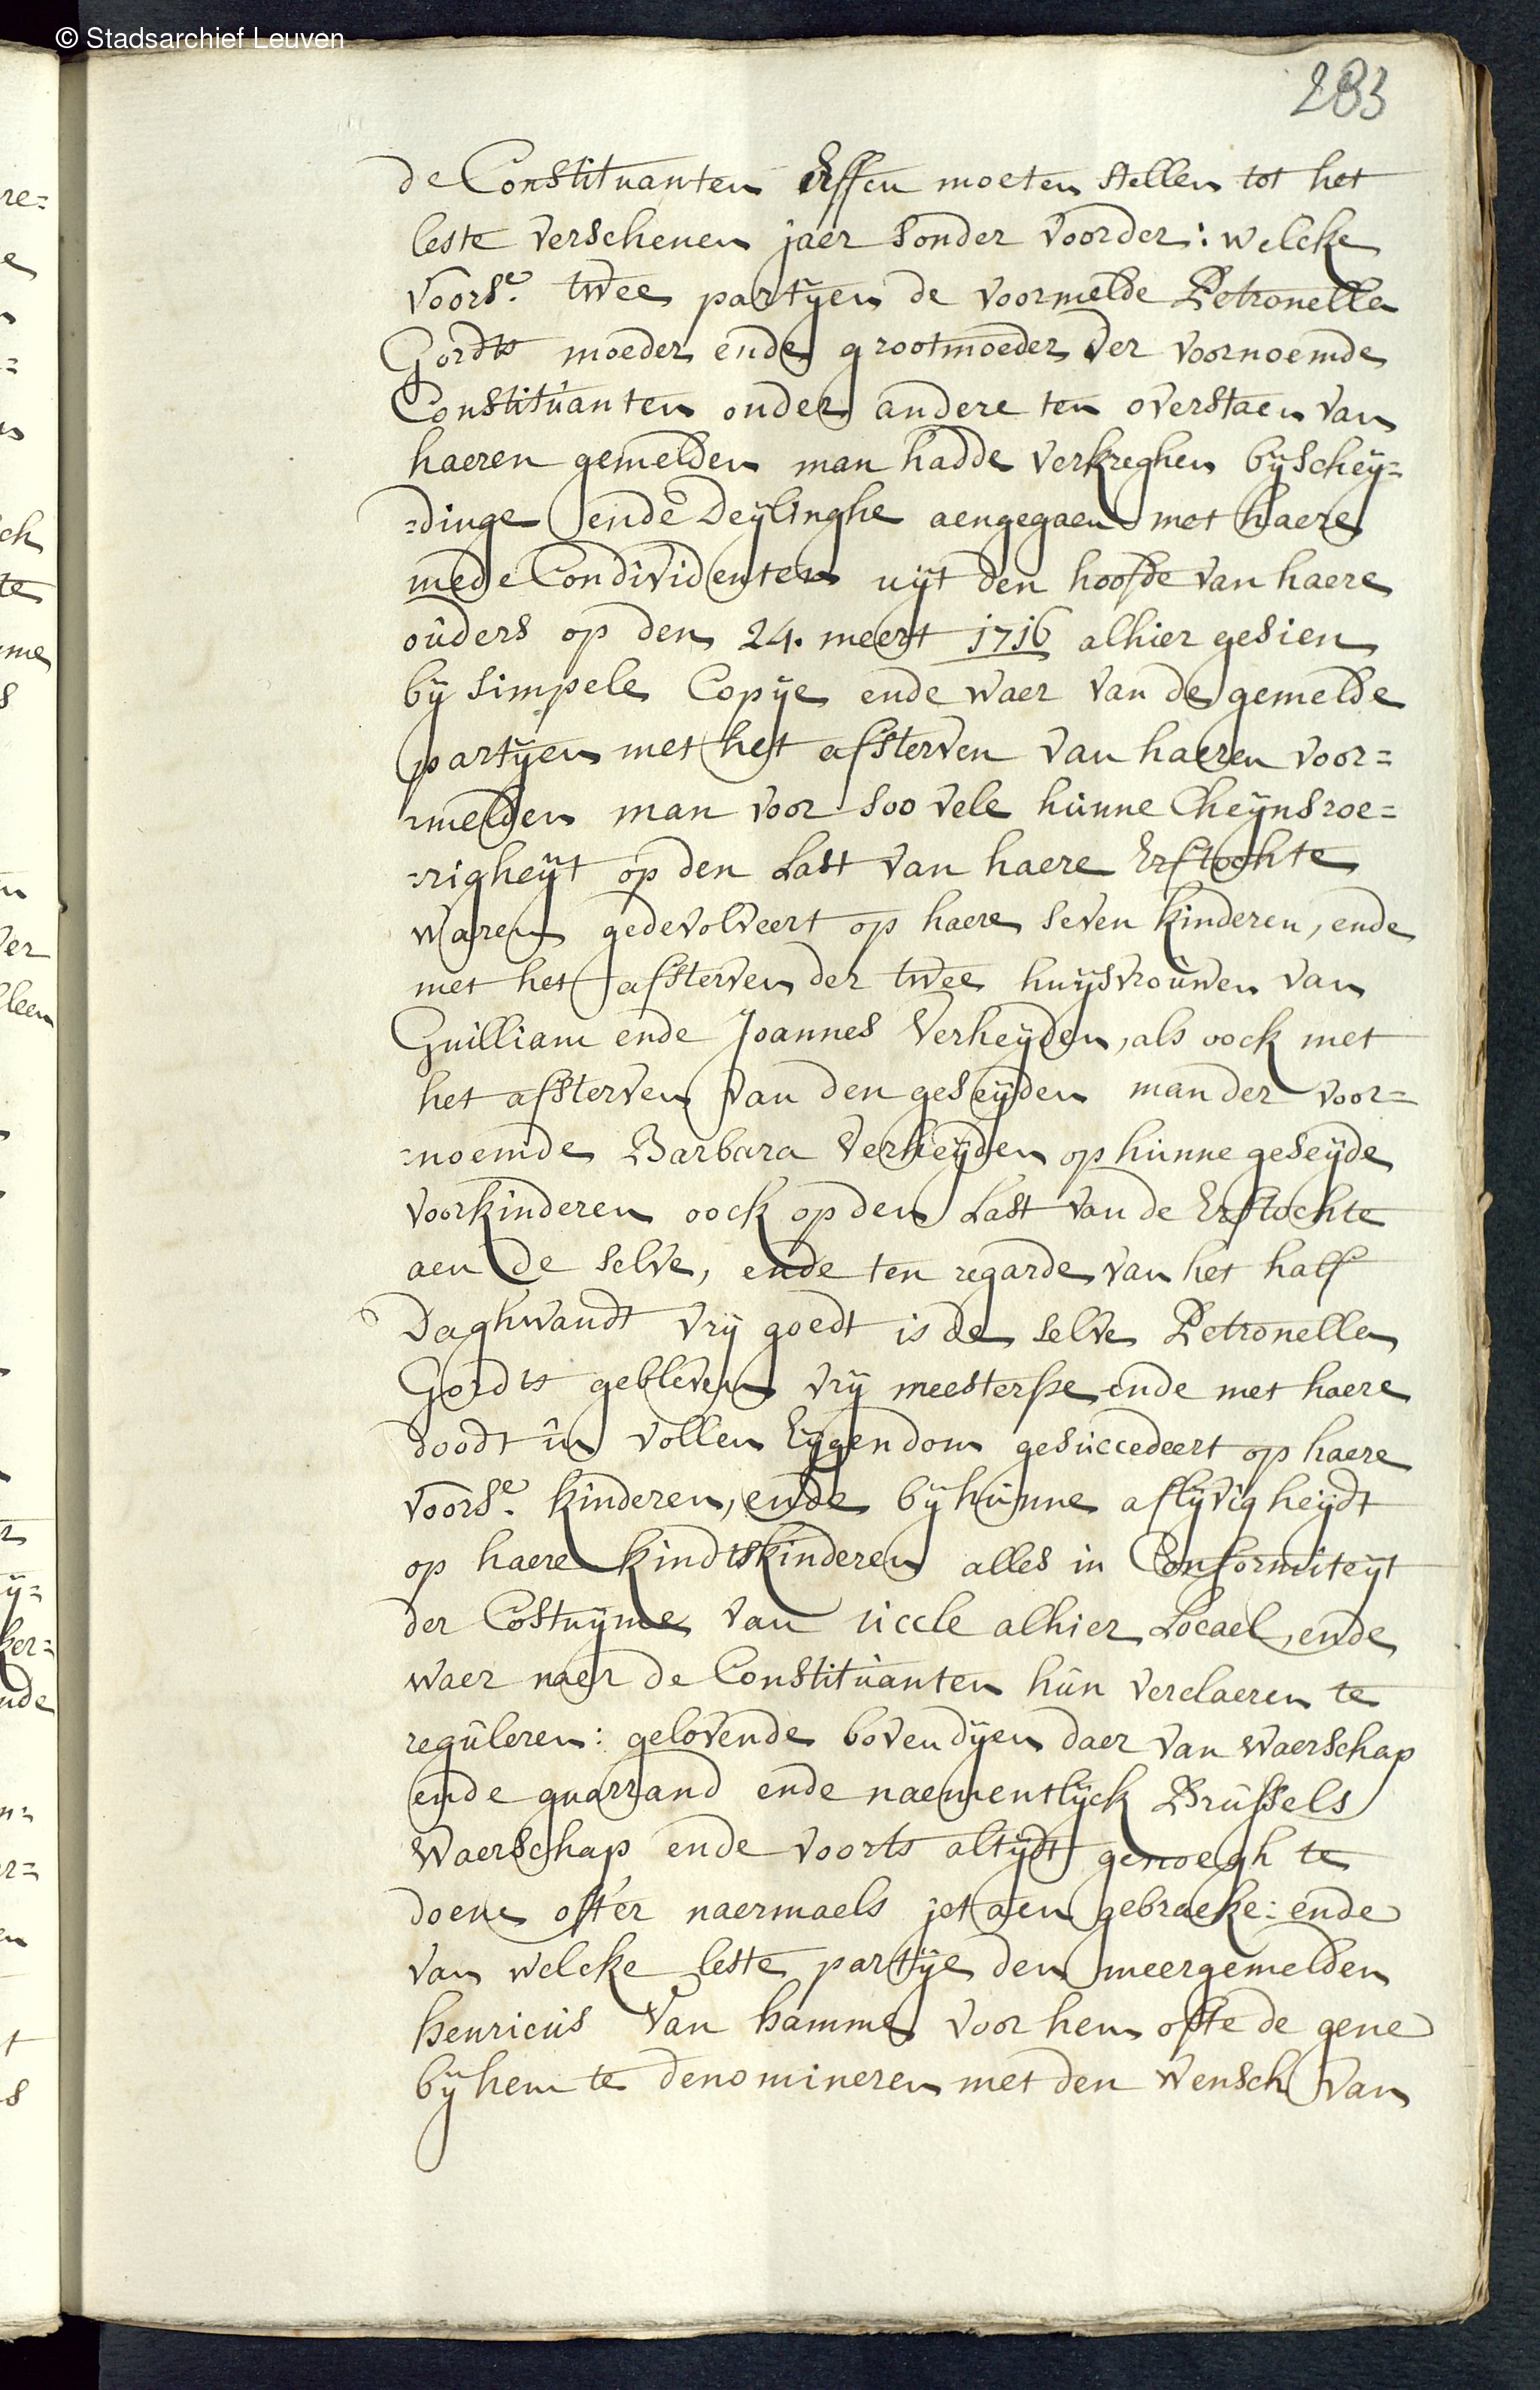 © Stadsarchief Leuven
283
de Constituanten Effen moeten stellen tot het
leste verschenen jaer sonder voorder: welcke
voors.e twee partÿen de voormelde Petronella
Gordts moeder ende grootmoeder der voornoemde
Constituanten onder andere ten overstaen van
haeren gemelden man hadde verkreghen bÿ scheÿ=
=dinge ende Deÿlinghe aengegaen met haere
mede Condividenten uÿt den hoofde van haere
ouders op den 24. meert 1716 alhier gesien
bÿ simpele Copÿe ende waer van de gemelde
partÿen met het afsterven van haeren voor=
rmelden man voor soo vele hunne Cheÿnsroe=
=righeÿt op den Last van haere Erftochte
waren gedevolveert op haere seven kinderen, ende
met het afsterven der twee huÿsvrouwen van
Guilliam ende Joannes Verheÿden, als oock met
het afsterven van den geseÿden man der voor=
=noemde Barbara Verheÿden op hunne geseÿde
voorkinderen oock op den Last van de Erftochte
aen de selve, ende ten regarde van het half
Daghwandt vrÿ goedt is de selve Petronella
Gordts gebleven vrÿ meestersse ende met haere
doodt in vollen Eÿgendom gesuccedeert op haere
voors.e kinderen, ende bÿ hunne aflÿvigheÿdt
op haere kindtskinderen alles in Conformiteÿt
der Costuÿme van uccle alhier Locael, ende
waer naer de Constituanten hun verclaeren te
reguleren: gelovende bovendÿen daer van waerschap
ende guarrand ende naementlÿck Brussels
Waerschap ende voorts altÿdt genoegh te
doene oft'er naermaels jet aen gebraeke: ende
van welcke leste partÿe den meergemelden
henricus van hamme voor hem ofte de gene
bÿ hem te denomineren met den wensch van